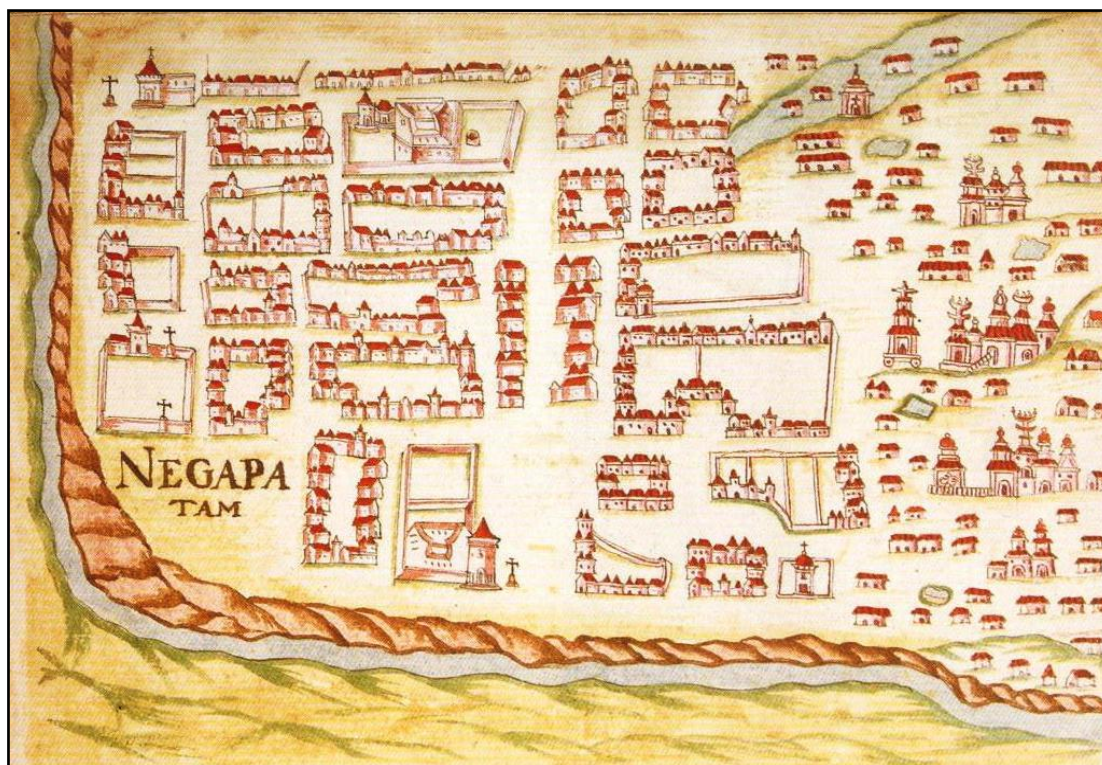 NEGAPA
TAM